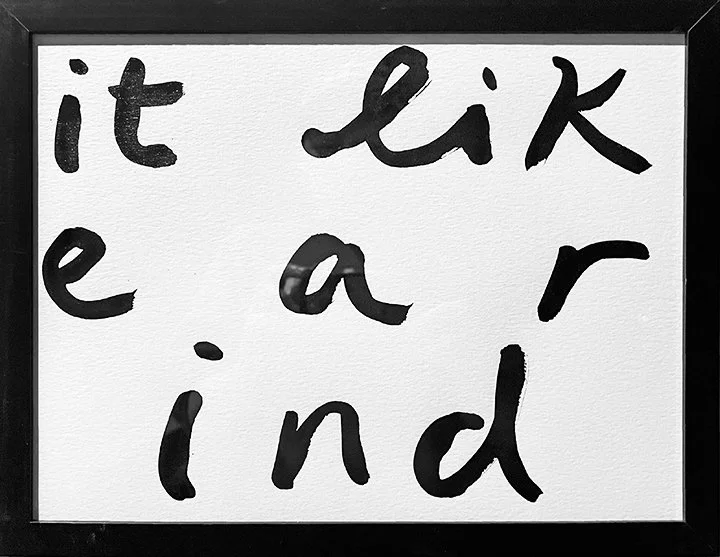 it lik
e a r
ind